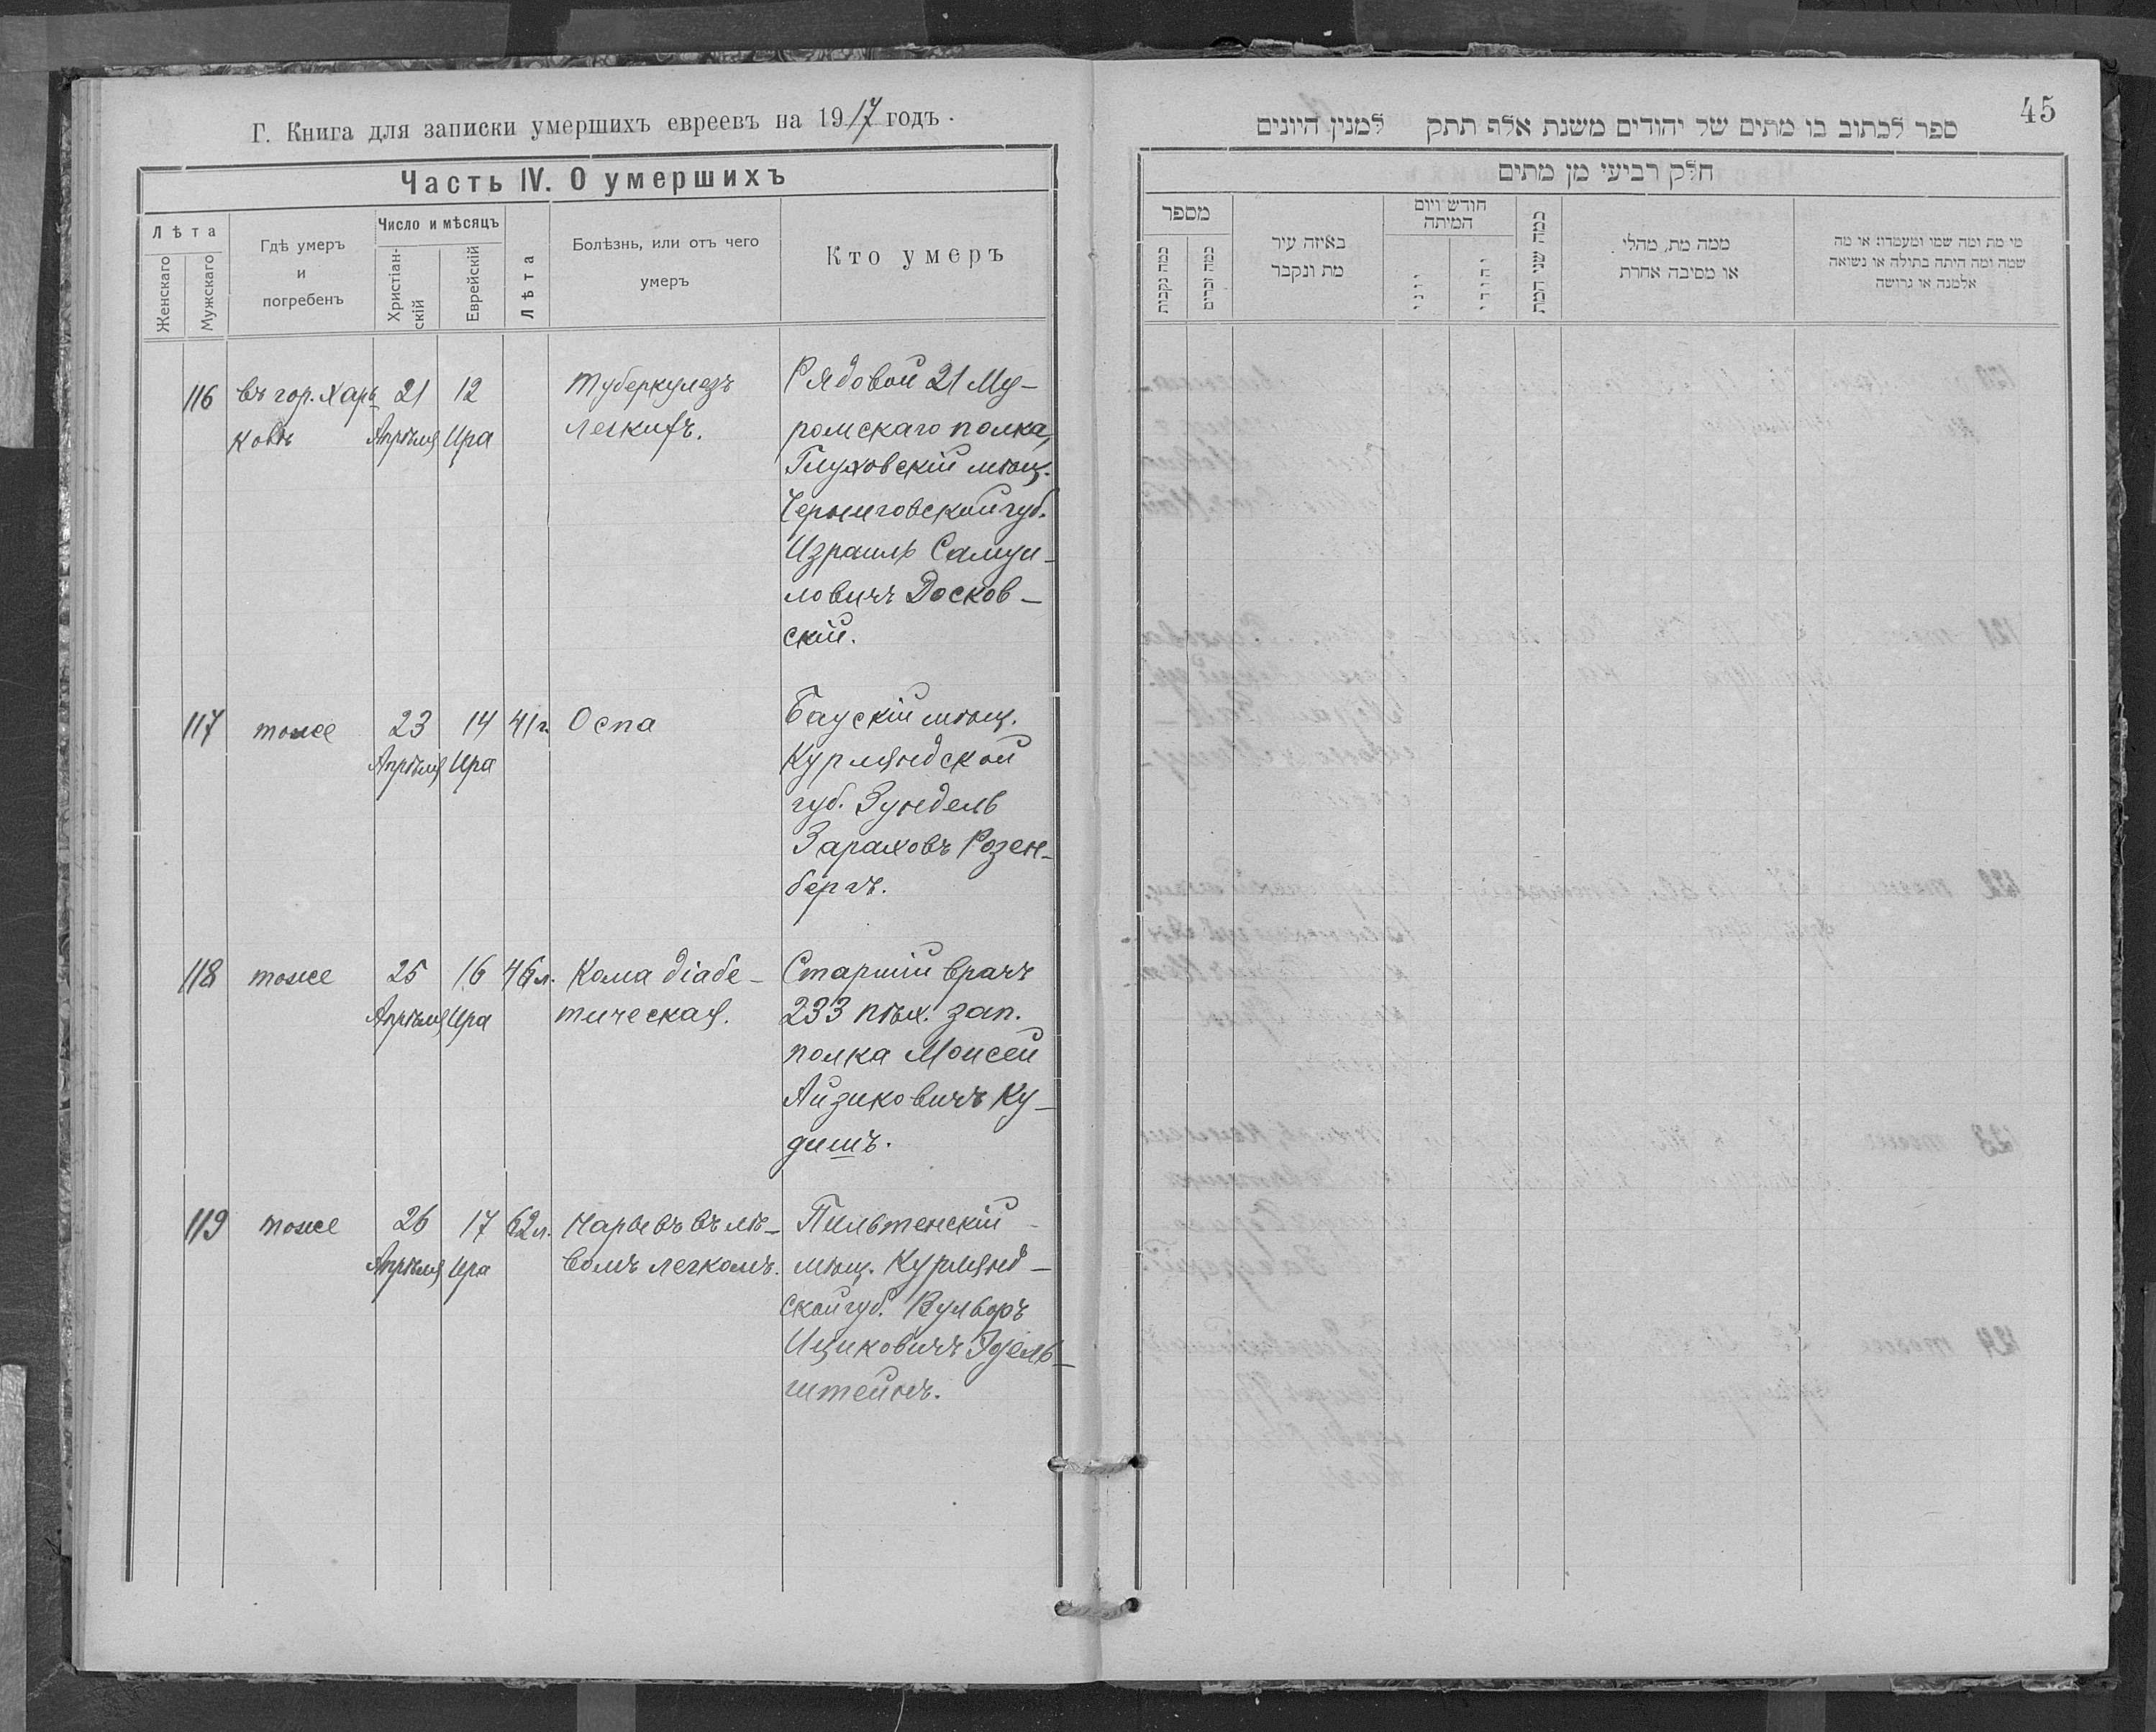 Г. Книга для записки умершихъ евреевъ на 1917 годъ.
Часть IV. О умершихъ
Лѣта
Женскаго
Мужскаго
Гдѣ умеръ
и
погребенъ
Число и мѣсяцъ
Христіан-
скій
Еврейскій
Лѣта
Болѣзнь, или отъ чего
умеръ
Кто умеръ
116 въ гор. Харь 21 12 Туберкулезъ Рядовой 21 Му-
ковѣ Апрѣля Ира легкихъ. ромскаго полка,
Глуховскій мѣщ.
Черниговской губ.
Израиль Самуи-
ловичъ Досков-
скій.
117 тоже 23 14 41 г. Оспа Баускій мѣщ.
Апрѣля Ира Курляндской
губ. Зундель
Зараховъ Розен-
бергъ.
118 тоже 25 16 46 л. Кома діабе- Старшій врачъ
Апрѣля Ира тическая. 233 пѣх. зап.
полка Моисей
Айзиковичъ Ку-
дишъ.
119 тоже 26 17 62 л. Нарывъ въ лѣ- Пильтенскій
Апрѣля Ира вомъ легкомъ. мѣщ. Курлянд-
ской губ. Вульфъ
Ициковичъ Эдель-
штейнъ.
45
ספר לכתוב בו מתים של יהודים משנת אלף תתק למנין היונים
חלק רביעי מן מתים
מספר
כמה נקבות
כמה זכרים
באיזה עיר
מת ונקבר
חודש ויום
המיתה
יוני
יהודי
כמה שני המת
ממה מת, מחלי
או מסיבה אחרת
מי מת ומה שמו ומעמדו: או מה
שמה ומה היתה בתולה או נשואה
אלמנה או גרושה